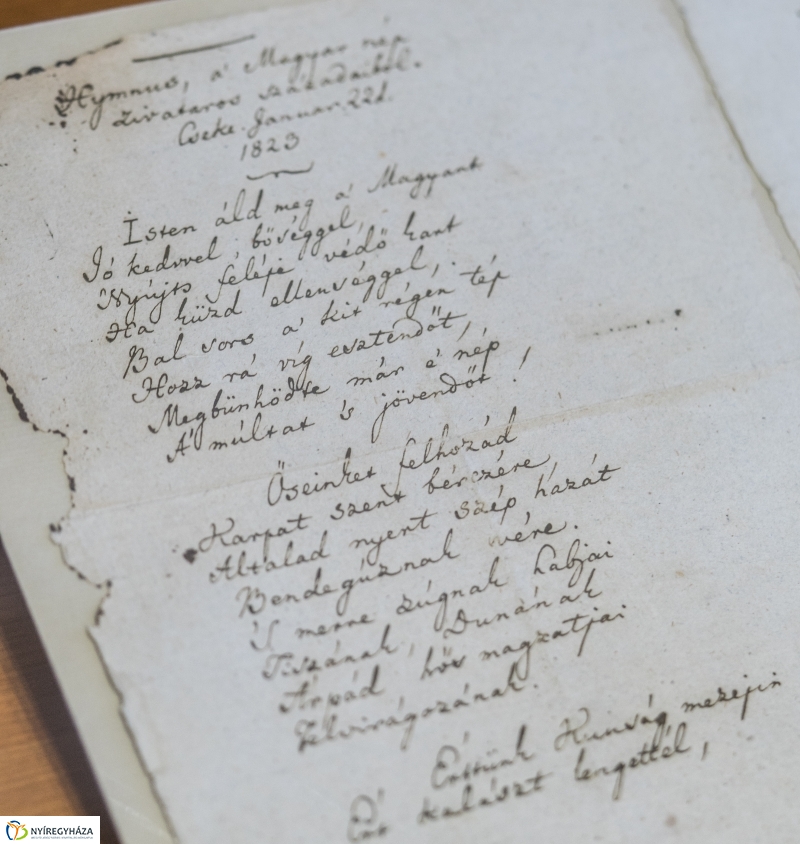 Hymnus, a' Magyar nép
zivataros századaiból.
Cseke. Januar. 22d.
1823
Isten áld meg a' Magyart
Jó kedvvel, bőséggel,
Nyújts feléje védő kart
Ha küzd ellenséggel,
Bal sors a' kit régen tép
Hozz rá víg esztendőt,
Megbünhödte már e' nép
A' múltat 's jövendőt!
Őseinket felhozád
Kárpát szent bérczére
Általad nyert szép hazát
Bendegúznak vére.
'S merre zúgnak habjai
Tiszának, Dunának
Árpád hős magzatjai
Felvirágozának.
Értünk Kunság mezejin
Ért kalászt lengettél,
NYÍREGYHÁZA